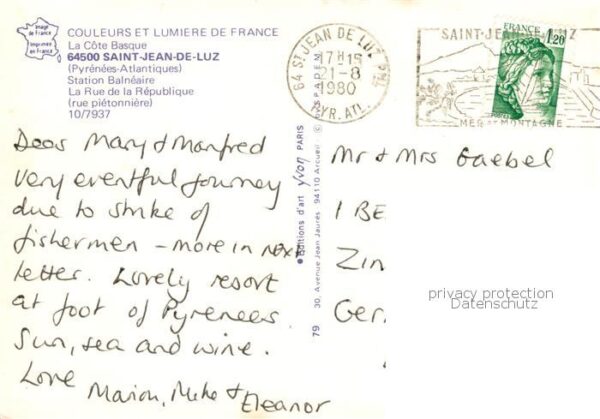 Image de France
Imprimée en France
COULEURS ET LUMIERE DE FRANCE
La Côte Basque
64500 SAINT-JEAN-DE-LUZ
(Pyrénées-Atlantiques)
Station Balnéaire
La Rue de la République
(rue piétonnière)
10/7937
64 ST JEAN DE LUZ PAL
17H15
21-8
1980
PYR. ATL.
SAINT-JEAN-DE-LUZ
MER ET MONTAGNE
FRANCE
1,20
POSTES
Dear Mary & Manfred
Very eventful journey
due to strike of
fishermen - more in next
letter. Lovely resort
at foot of Pyrenees.
Sun, sea and wine.
Love
Marion, Mike & Eleanor
SPADEM
Editions d'art yvon PARIS
79 30, Avenue Jean Jaurès 94110 Arcueil ©
Mr & Mrs Gaebel
1 BE
ZIN
Ger
privacy protection
Datenschutz